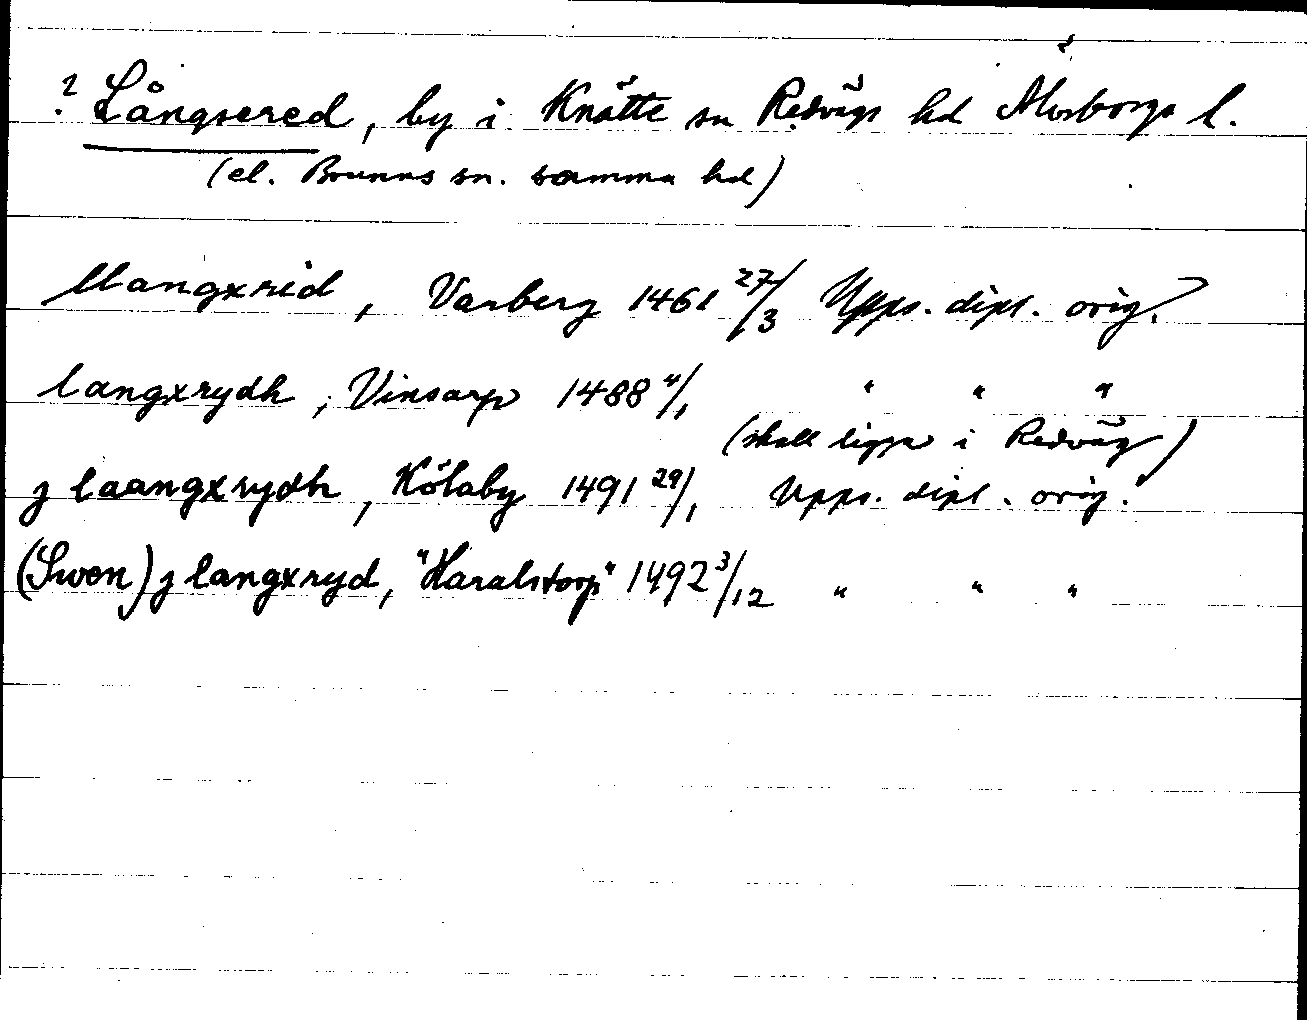 ? Långsered, by i Knätte sn Redvägs hd Älvsborgs l.
(el. Brunns sn. samma hd)
llangxrid, Varberg 1461 27/3 Upps. dipl. orig.?
langxrydh, Vinsarp 1488 4/1 " " "
(skall ligga i Redväg)
j laangxrydh, Kölaby 1491 29/1 Upps. dipl. orig.
(Swen) j langxryd, "Haralstorp" 1492 3/12 " " "